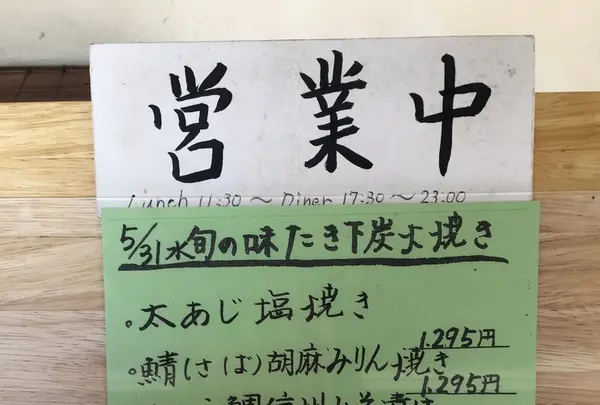 営業中
Lunch 11:30 〜 Diner 17:30 〜 23:00
5/31水旬の味たき下炭火焼き
。太あじ塩焼き
1.295円
。鯖(さば)胡麻みりん焼き
1.295円